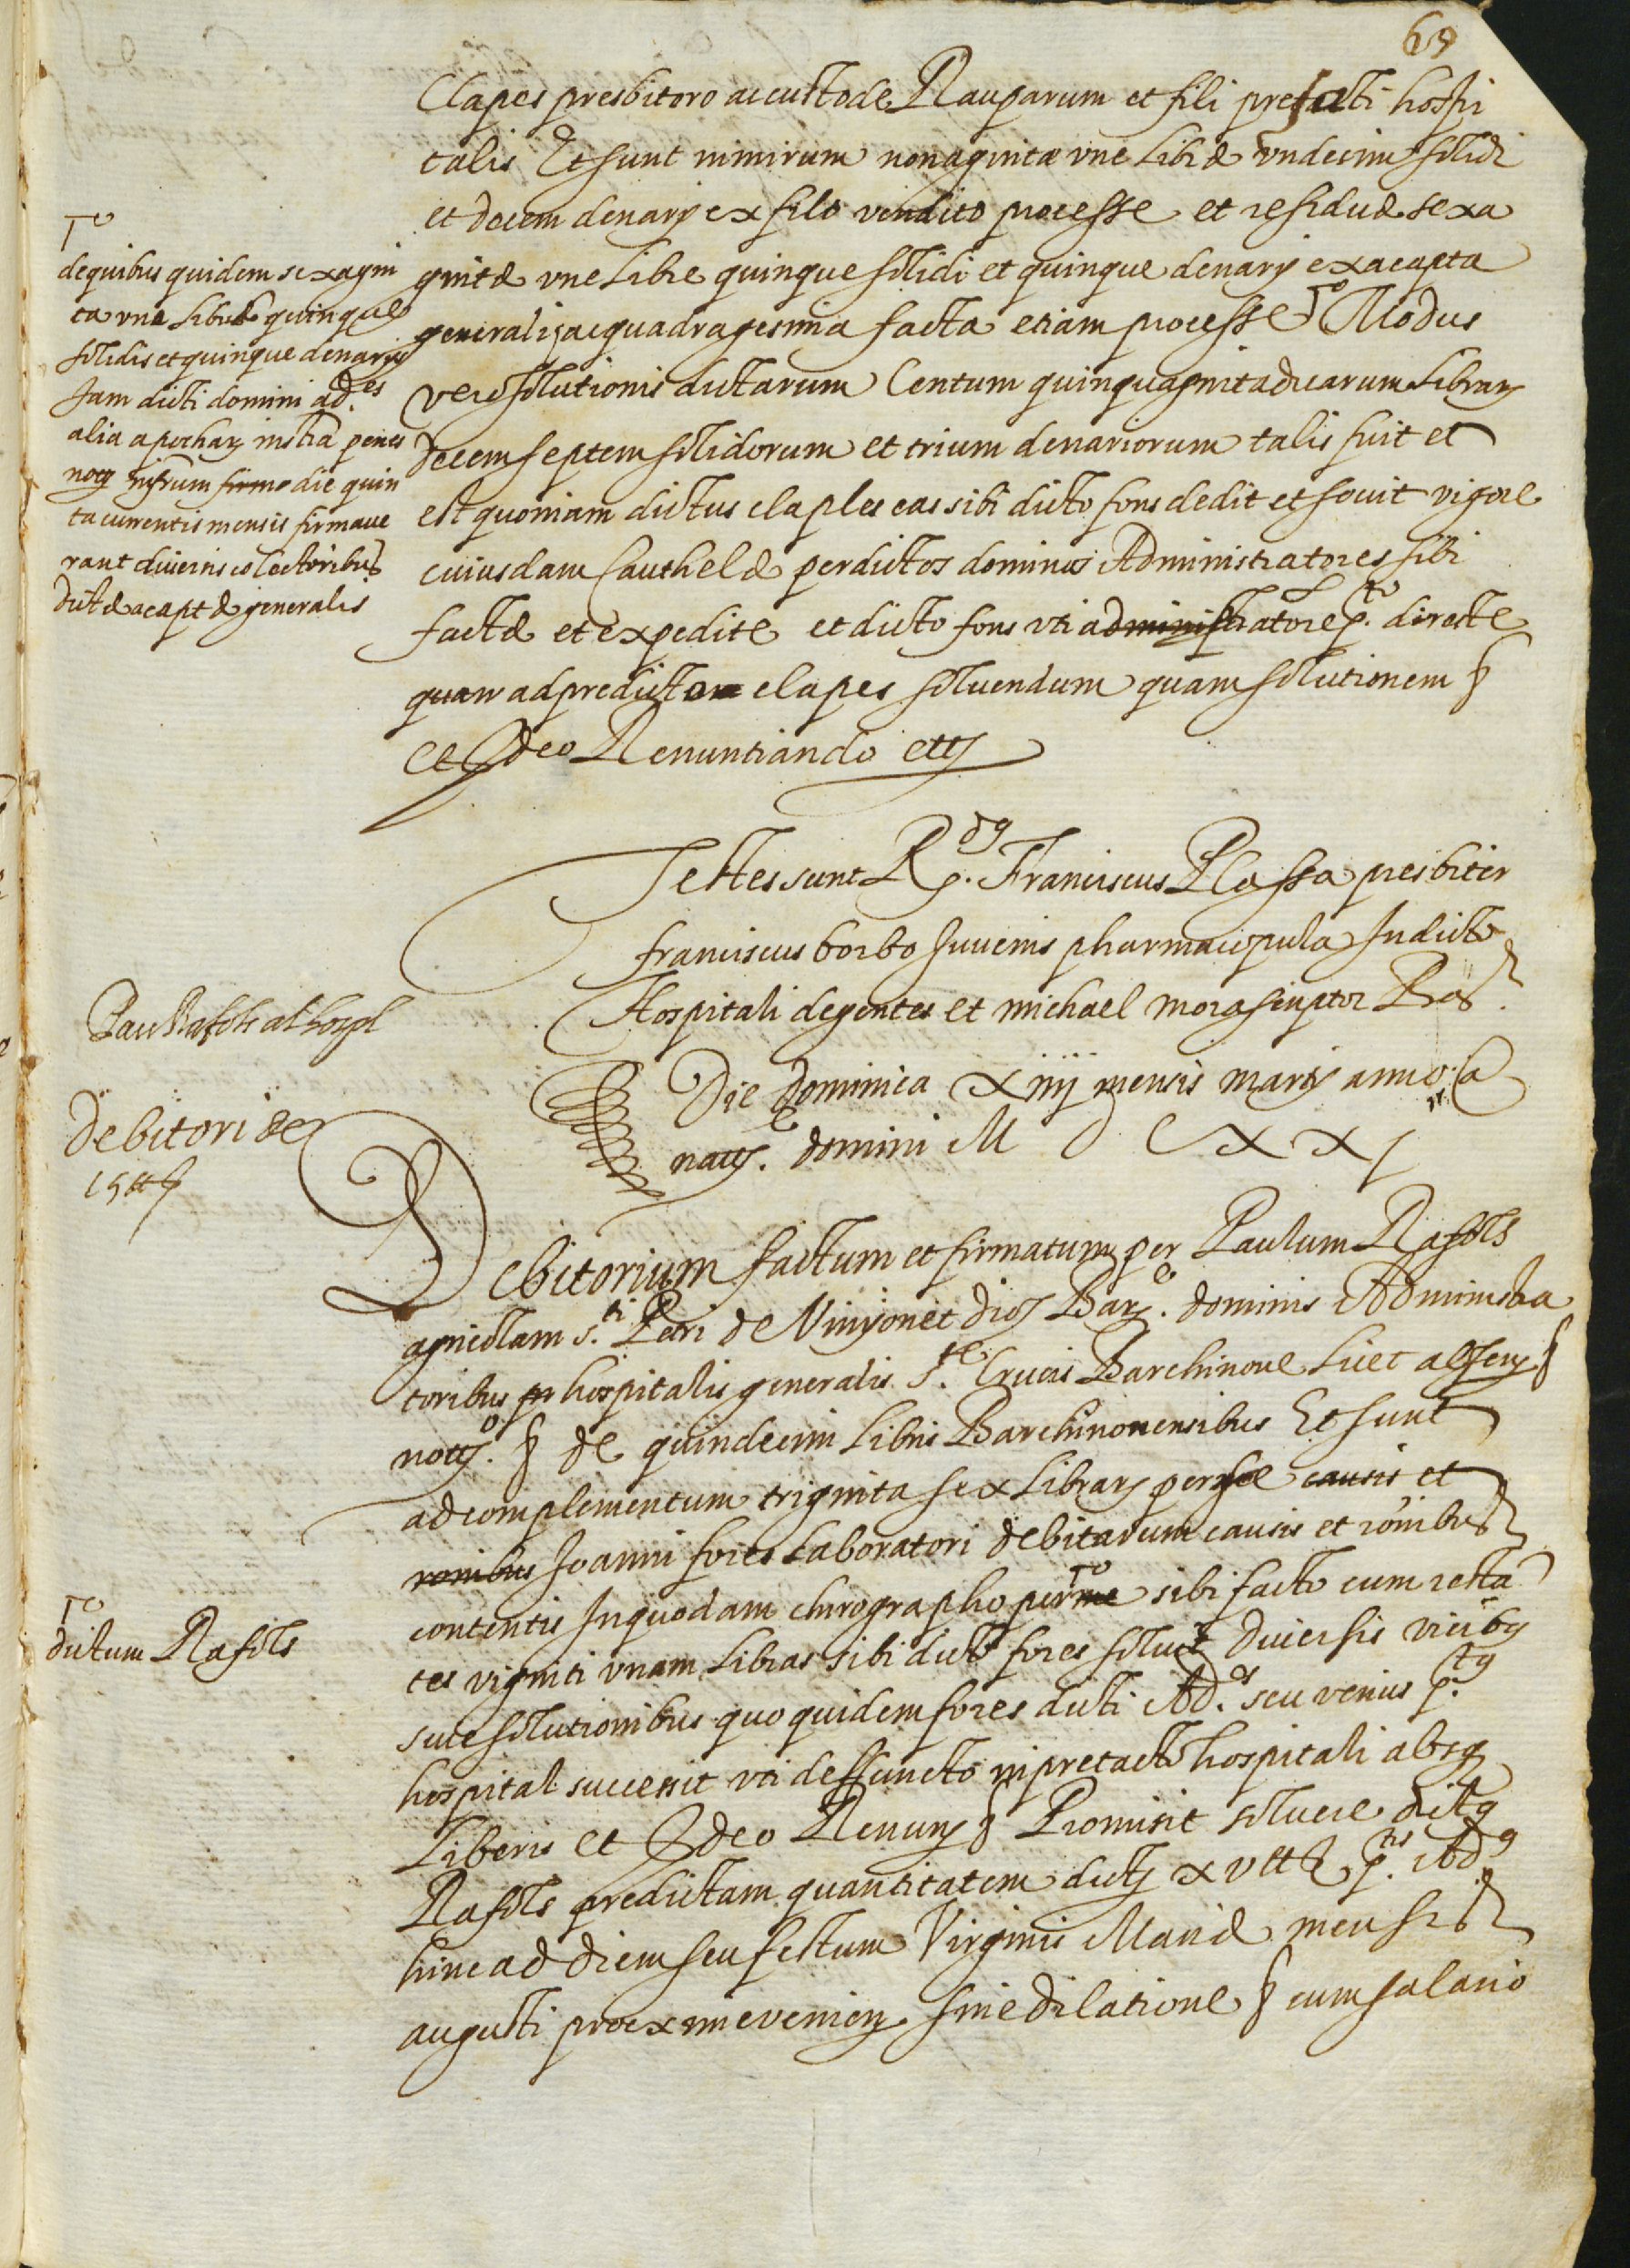 69
Clapes presbitero ac custode Rauparum et fili prefacti hospi
talis Et sunt nimirum nonagintæ vne Libræ vndecim solidi
et decem denarij ex filo vendito processe et residuæ sexa
gintæ vne Libre quinque solidi et quinque denarij ex acapta
generali ac quadragesima facta etiam processe Modus
vero solutionis dictarum Centum quinquaginta duarum Librar
decem septem solidorum et trium denariorum talis fuit et
est quoniam dictus claples eas sibi dicto fons dedit et soluit vigore
cuiusdam Cauthelæ per dictos dominos Administratores sibi
factæ et expedite et dicto fons vti administratore p.to directe
quam ad predictum clapes soluendum quam solutionem
et Ideo Renuntiando etc
Testes sunt R.dus p. Franciscus Plassa presbiter
franciscus borbo Juuenis pharmacopula In dicto
Hospitali degentes et michael mora scriptor
Die dominica xiiij mensis martij anno a
nat.e domini M D C X X j
Debitorium factum et firmatum per Paulum Rafols
agricolam s.ti Petri de Vinyonet dioc Bar.e dominis Administra
toribus hospitalis generalis s.te Crucis Barchinone Licet absen
not.o de quindecim Libris Barchinonensibus Et sunt
ad complementum triginta sex Librar per se causis et
ronibus Joanni fores Laboratori debitarum causis et ronibus
contentis In quodam chirographo per me sibi facto cum resta
tes viginti vnam Libras sibi dicto fores soluit diuersis vicibus
siue solutionibus quo quidem fores dicti Ad.es seu verius p.tus
hospital successit vti deffuncto in pretacto hospitali absq
Liberis et Ideo Renun Promisit soluere dictus
Rafols predictam quantitatem dict xv ll p.tis Ad
hinc ad diem seu festum Virginis Mariæ mensis
augusti proxime venien sine dilatione cum salario
de quibus quidem sexagin
ta vna Libris quinque
solidis et quinque denarijs
Jam dicti domini ad.es
alia apochar instra penes
noty infrum firmo die quin
ta currentis mensis firmaue
rant diuersis colectoribus
dictæ acaptæ generalis
Pau Rafols al hospl
Debitori de
15 ll
dictum Rafols